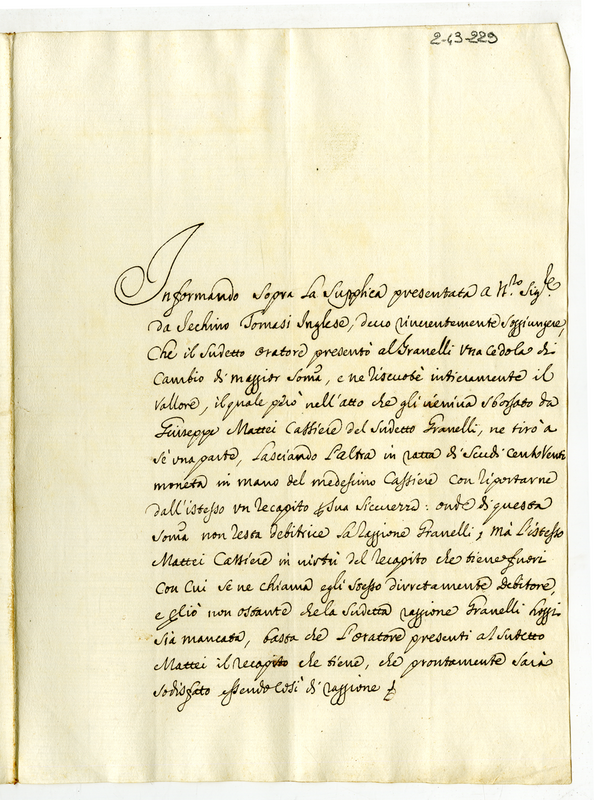 2-43-229
Informando sopra La Supplica presentata a N.ro Sig.re
da Jechino Tomasi Inglese, devo riverentemente soggiungere,
Che il sudetto oratore presentò al Granelli vna Cedola di
Cambio di maggior Som̃a, e ne riscuotè intieramente il
Vallore, il quale però nell'atto che gli veniva sborsato da
Giuseppe Mattei Cassiere del sudetto Granelli, ne tirò a
sè vna parte, Lasciando L'altra in ratta di Scudi Cento Venti
moneta in mano del medesimo Cassiere con riportarne
dall'istesso vn recapito p sua sicurezza: onde di questa
Som̃a non resta debitrice La raggione Granelli; mà l'istesso
Mattei Cassiere in virtù del recapito che tiene fuori
Con Cui se ne chiama egli stesso direttamente Debitore,
e perciò non ostante che la sudetta raggione Granelli hoggi
sia mancata, basta che L'oratore presenti al sudetto
Mattei il recapito che tiene, che prontamente sarà
sodisfato essendo Così di raggione